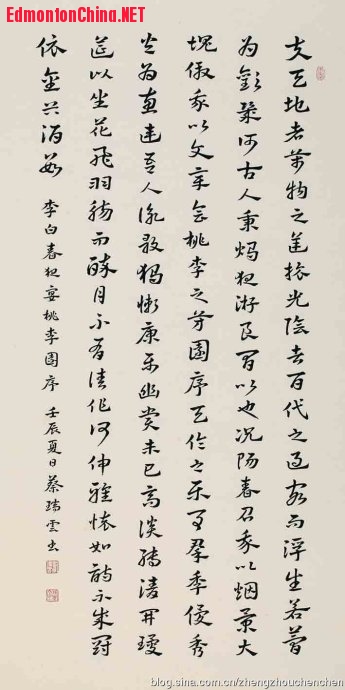 EdmontonChina.NET
夫天地者萬物之逆旅光陰者百代之過客而浮生若夢
為歡幾何古人秉燭夜游良有以也況陽春召我以烟景大
塊假我以文章會桃李之芳園序天倫之樂事群季俊秀
皆為惠連吾人詠歌獨慚康樂幽賞未已高談轉清開瓊
筵以坐花飛羽觴而醉月不有佳作何伸雅懷如詩不成罰
依金谷酒數
李白春夜宴桃李園序 壬辰夏日蔡瑞雲書
blog.sina.com.cn/zhengzhouchenchen